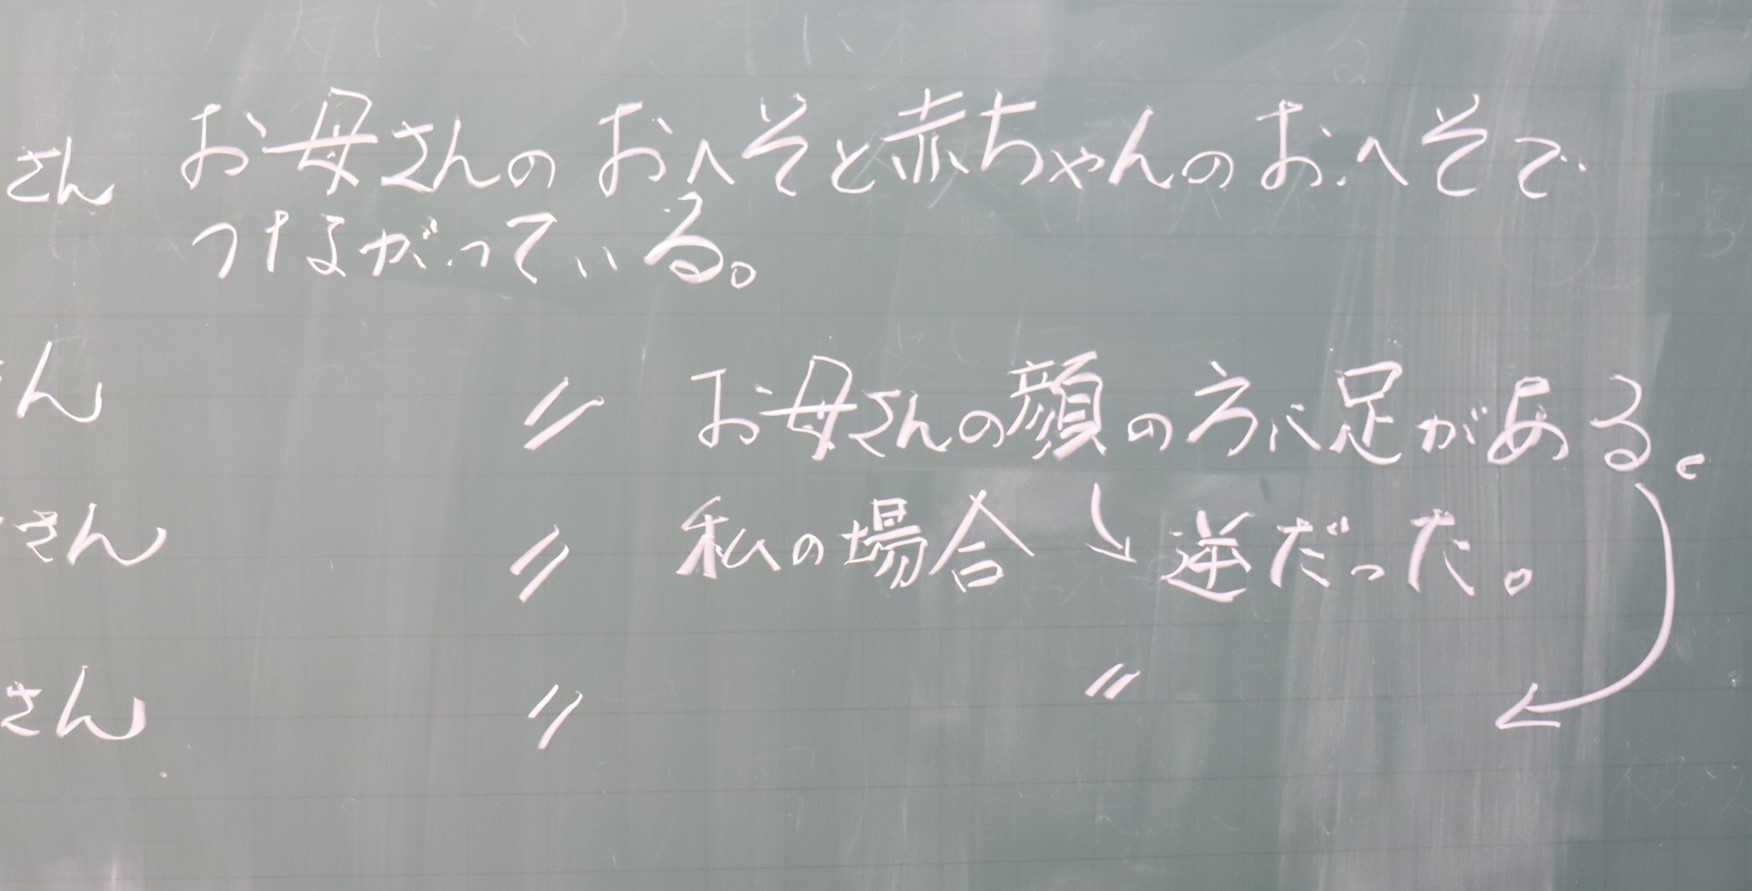 さん お母さんのおへそと赤ちゃんのおへそで
つながっている。
ん 〃 お母さんの顔の方に足がある。
さん 〃 私の場合 逆だった。
さん 〃 〃